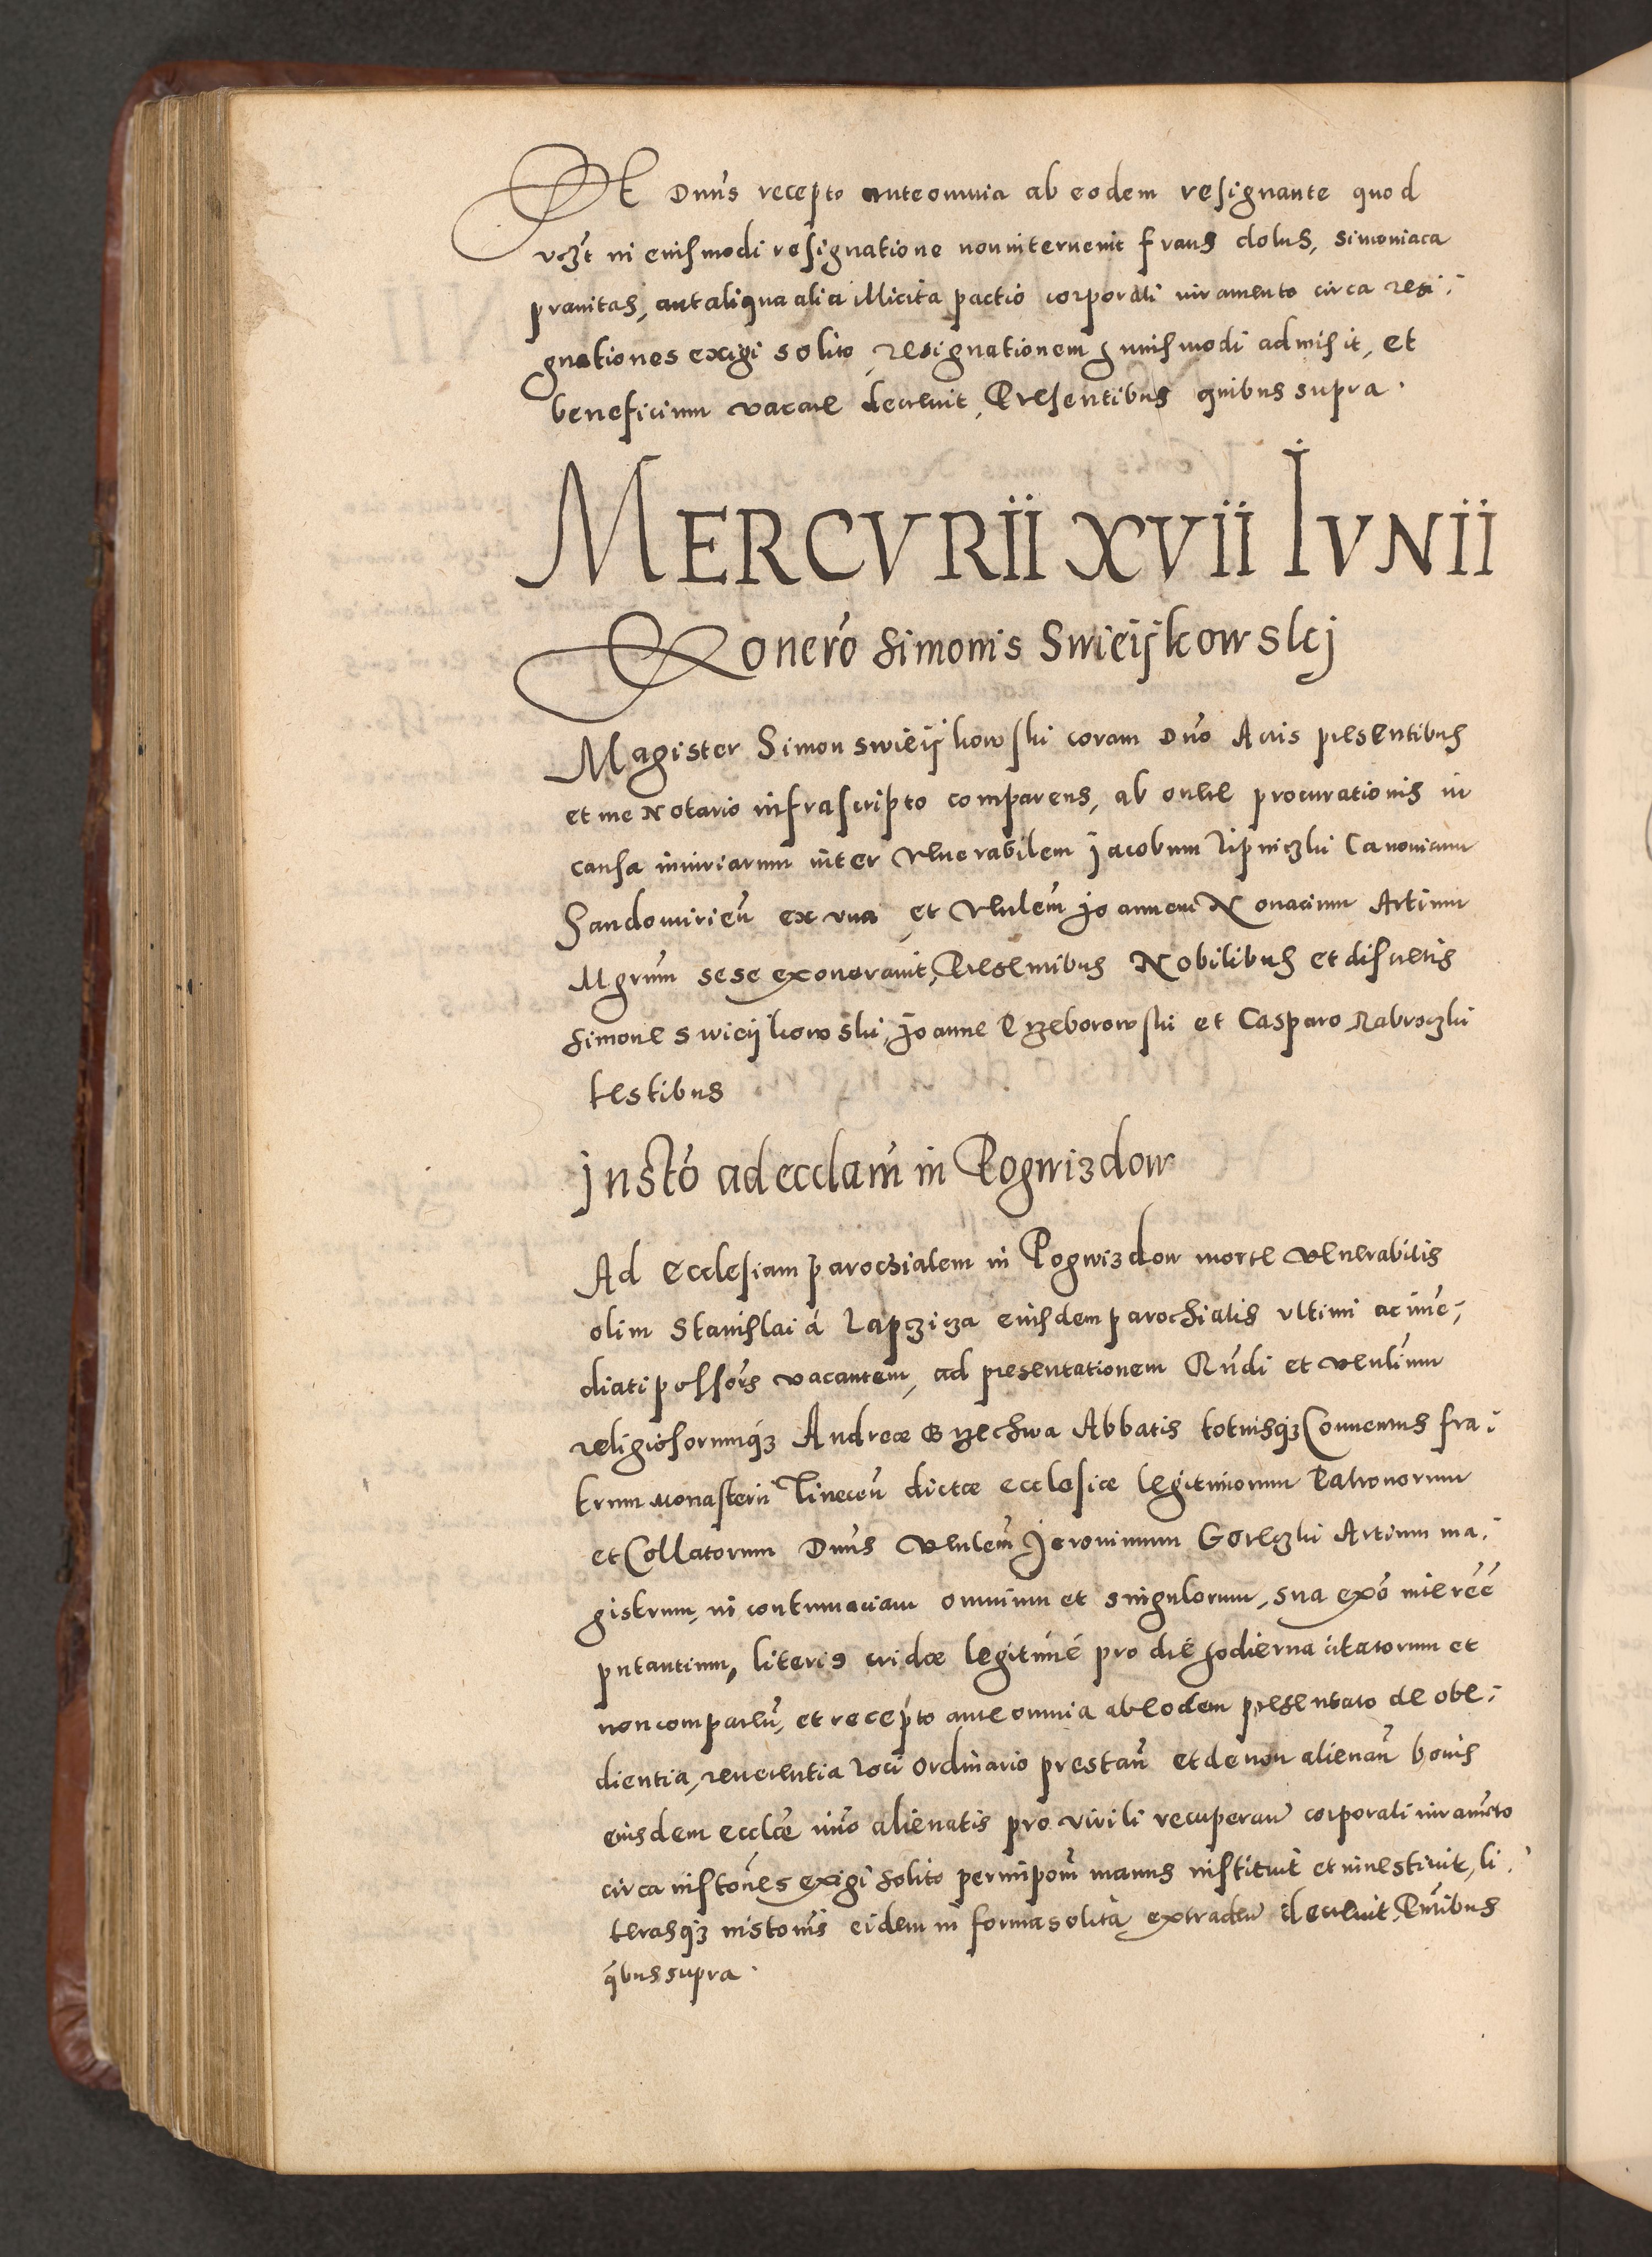 Et Dnus recepto ante omnia ab eodem resignante quod
vczt in eiusmodi resignatione non interuenit fraus dolus, simoniaca
prauitas, aut aliqua alia illicita pactio corporali iuramento circa resi-
gnationes exigi solito, resignationem huiusmodi admisit, et
beneficium vacare decreuit, Presentibus quibus supra.
MERCVRII XVII IVNII
Exonero Simonis Swieijkowskj
Magister Simon Swieijkowski coram Dno Actis presentibus
et me Notario infrascripto comparens, ab onere procurationis in
causa iniuriarum inter Venerabilem Jacobum Lipniczki Canonicum
Sandomirien ex vna et Venlem Joannem Nonacium Artium
Mgrum sese exonerauit, Presentibus Nobilibus et discretis
Simone Swieijkowski, Joanne Przeborowski et Casparo Zabroczki
testibus
Insto ad ecclam in Pogwizdow
Ad Ecclesiam parochialem in Pogwizdow morte Venerabilis
olim Stanislai á Lapczicza eiusdem parochialis vltimi ac imme-
diati possors vacantem, ad presentationem Rndi et venlium
religiosorumqz Andreæ Brzechwa Abbatis totiusqz Conuentus fra-
trum Monasterii Tinecen dictæ ecclesiæ legitimorum Patronorum
et Collatorum Dnus Venlem Jeronimum Goreczki Artium ma-
gistrum, in contumaciam omnium et singulorum, sua exo interee
putantium, literis cridæ legitimé pro dié hodierna citatorum et
non comparen, et recepto ante omnia ab eodem presentato de obe-
dientia, reuerentia loci ordinario prestan et de non alienan bonis
eiusdem ecclæ immo alienatis pro virili recuperan corporali iuramto
circa instones exigi solito per impom manus instituit et inuestiuit, li-
terasqz instonis eidem in forma solita extraden decreuit, Pntibus
qbus supra.